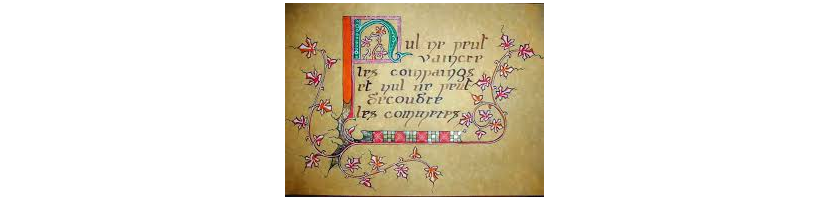 Nul ne peut
vaincre
les compaings
et nul ne peut
decoudre
les commeres